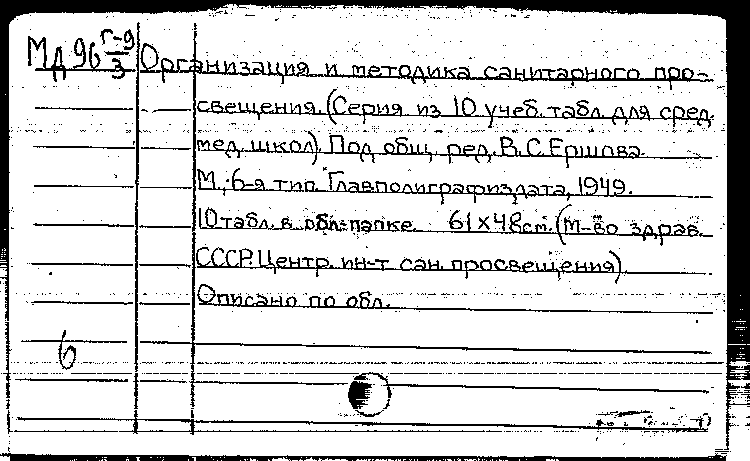 Мд 96 г-9/3
Организация и методика санитарного про-
свещения. (Серия из 10 учеб. табл. для сред.
мед. школ). Под общ. ред. В.С. Ершова.
М., 6-я тип. Главполиграфиздата, 1949.
10 табл. в обл.-папке. 61×48см. (М-во здрав.
СССР. Центр. ин-т сан. просвещения).
Описано по обл.
6